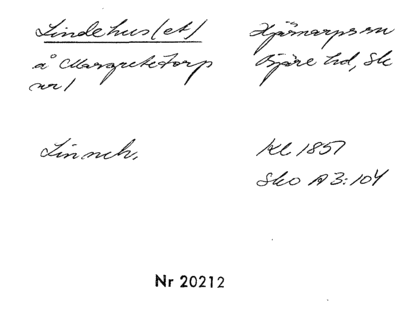 Lindehus(et)
å Margretetorp
nr 1
Hjärnarps sn
Bjäre hd, Sk
Linneh.
Kl 1857
Sko A3:104
Nr 20212